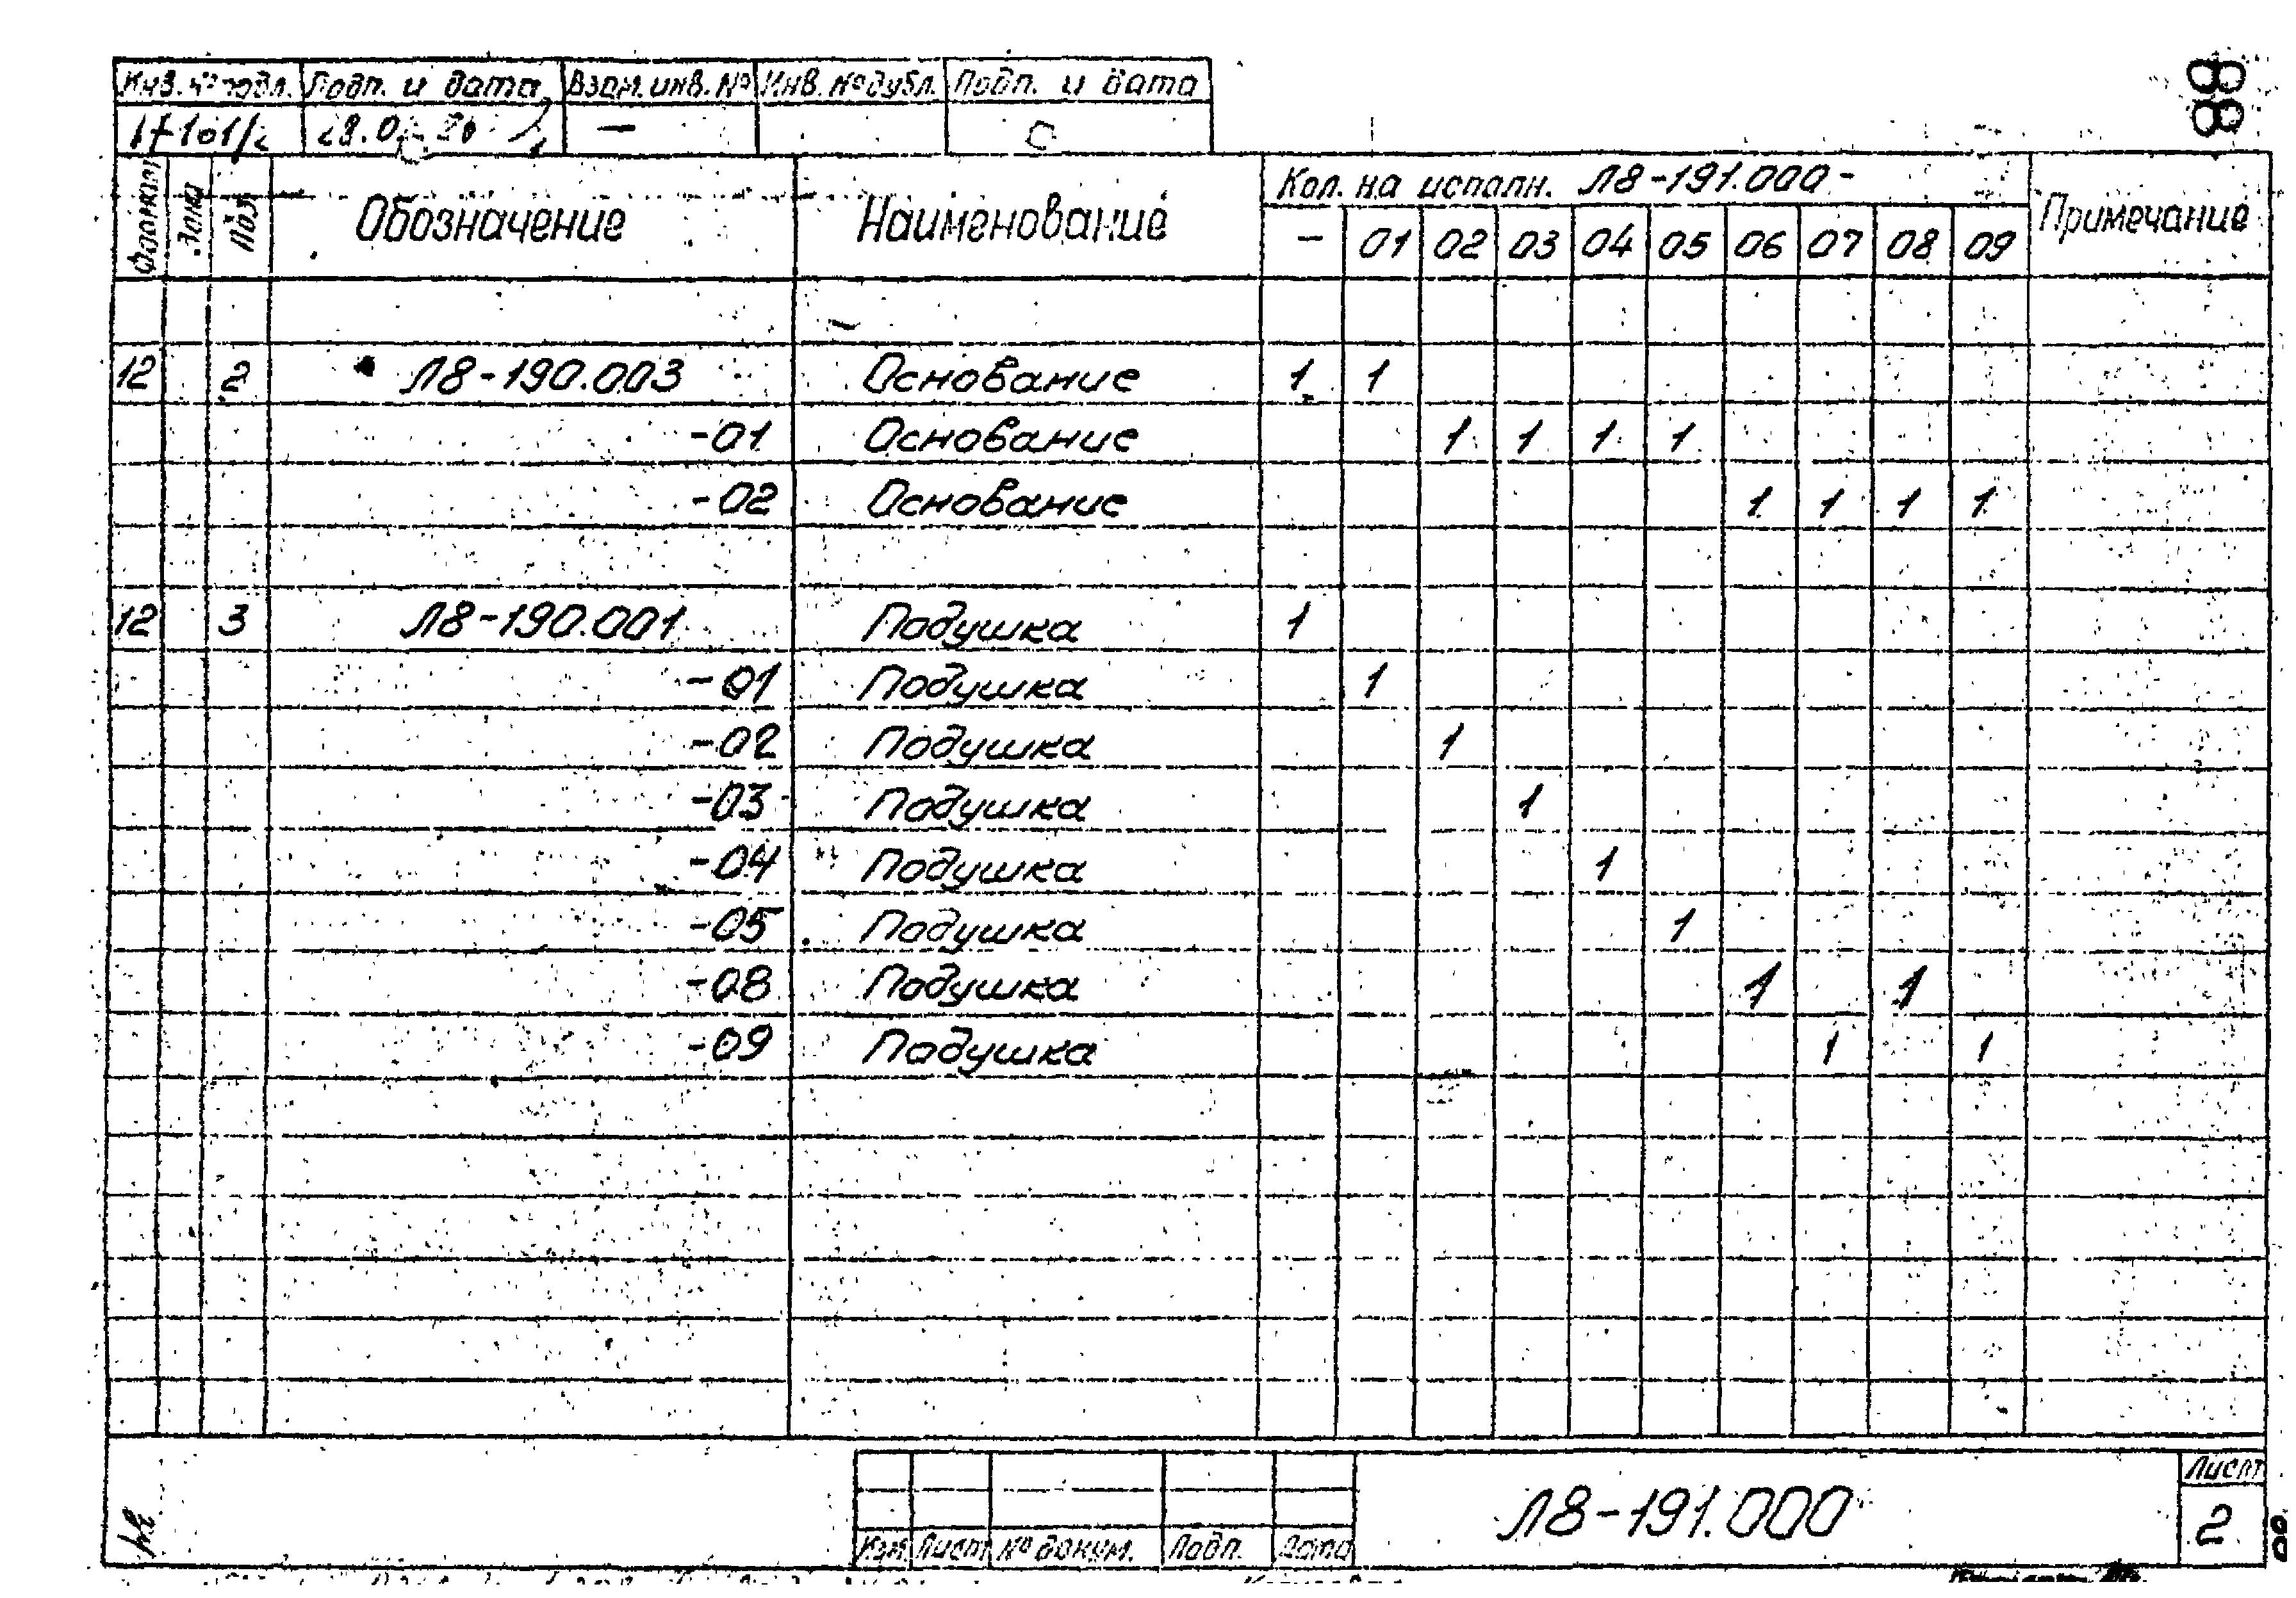 88
Инв. № подл. Подп. и дата Взам. инв. № Инв. № дубл. Подп. и дата
—
Формат Зона Поз. Обозначение Наименование Кол. на исполн. Л8-191.000- Примечание
– 01 02 03 04 05 06 07 08 09
12 2 Л8-190.003 Основание 1 1
-01 Основание 1 1 1 1
-02 Основание 1 1 1 1
12 3 Л8-190.001 Подушка 1
-01 Подушка 1
-02 Подушка 1
-03 Подушка 1
-04 Подушка 1
-05 Подушка 1
-08 Подушка 1 1
-09 Подушка 1 1
Изм. Лист № докум. Подп. Дата
Л8-191.000
Лист
2